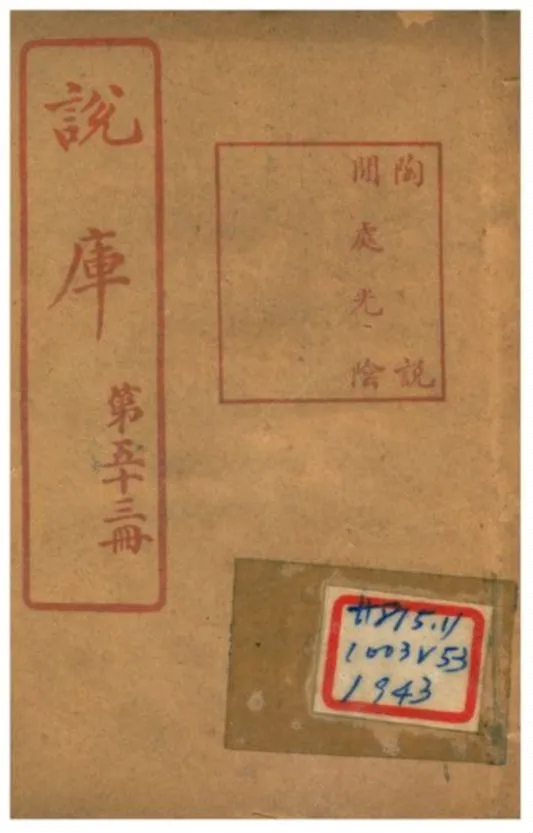 說庫
第五十三冊
陶說
閒處光陰
H875.11
1003 V53
1943